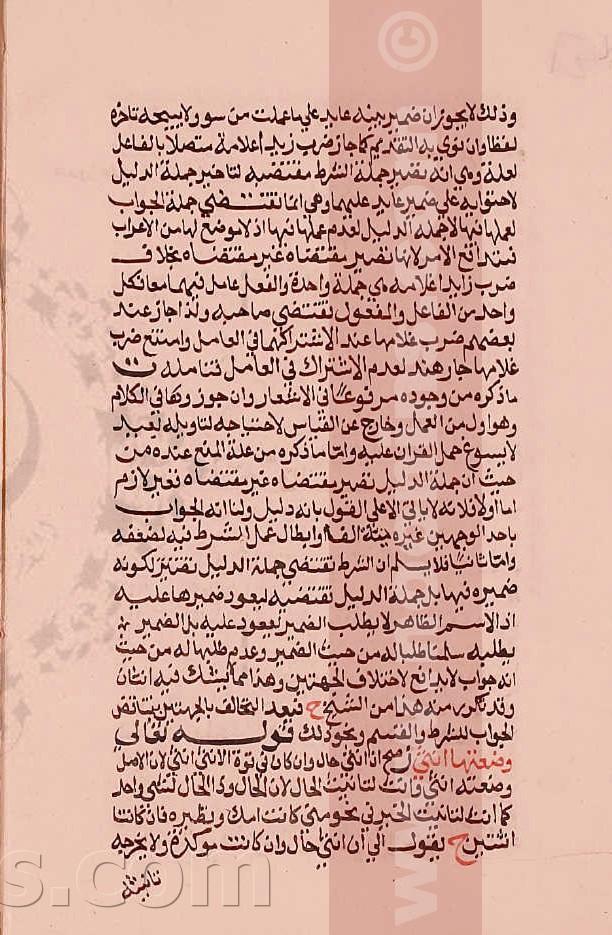 وذلك لا يجوز ان ضمير بينه عايد علي ما عملت من سوء ولا يبيحه تاخره
لفظا وان نوي به التقديم كما جاز ضرب زيدا غلامه متصلا بالفاعل
لعلة وهي انه تصير جملة الشرط مقتضية لتاخير جملة الدليل
لاحتوايه علي ضمير عايد عليهما وهي انما تقتضي جملة الجواب
لعملها فيها لا جملة الدليل لعدم عملها فيها اذ لا موضع لها من الاعراب
فيتدافع الامر لانها تصير مقتضاة غير مقتضاة بخلاف
ضرب زيدا غلامه هي جملة واحدة والفعل عامل فيهما معا فكل
واحد من الفاعل والمفعول يقتضي صاحبه ولذا جاز عند
بعضهم ضرب غلامها عند الاشتراكهما في العامل وامتنع ضرب
غلامها جار هند لعدم الاشتراك في العامل فتامله
ما ذكره من وجوده مرفوعا في الاشعار وان جوزوها في الكلام
وهو اول من العمل وخارج عن القياس لاحتياجه لتاويله بعيد
لا يسوغ حمل القران عليه واما ما ذكره من علة المنع عنده من
حيث ان جملة الدليل تصير مقتضاة غير مقتضاة فغير لازم
اما اولا فلانه لا ياتي الا علي القول بانه دليل ولنا انه الجواب
باحد الوجهين غيره حيث الفا او ابطال عمل الشرط فيه لضعفه
واما ثانيا فلا يسلم ان الشرط تقتضي جملة الدليل لكونه
ضميره فيها بل جملة الدليل تقتضيه ليعود ضميرها عليه
اذ الاسم الظاهر لا يطلب الضمير ليعود عليه بل الضمير
يطلبه سلمنا طلبا له من حيث الضمير وعدم طلبها له من حيث
انه جواب لا تدافع لاختلاف الجهتين وهذا مما لا يشك فيه اثنان
وقد تكرر منه هذا من الشيخ ح فبعد التخالف بالجهتين يتناقض
الجواب للشرط والقسم ونحو ذلك قوله تعالي
وضعتها انثي صح اذ انثي حال وان كان في قوة الانثي انثي لان الاصل
وضعته انثي فانث لتانيث الحال لان الحال وذا الحال لشي واحد
كما انث لتانيث الخبر في نحو من كانت امك ونظيره فان كانتا
اثنتين ح يقول الي ان انثي حال وان كانت موكدة ولا يخرجه
تانيثه